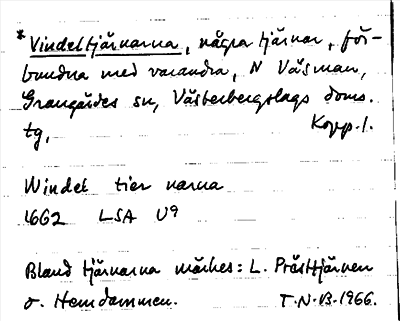 * Vindeltjärnarna, några tjärnar, för-
bundna med varandra, N Väsman,
Grangärdes sn, Västerbergslags doms.
tg, Kopp. l.
Windel tier narna
1662 LSA U9
Bland tjärnarna märkes: L. Prästtjärnen
o. Hemdammen. T.N-B-1966.